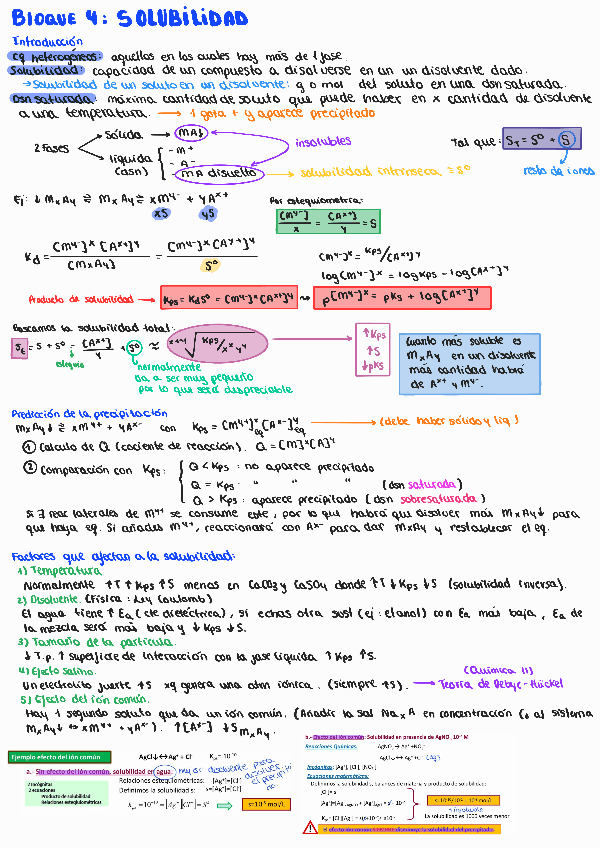 Bloque 4: SOLUBILIDAD
Introducción
Eq heterogéneos: aquellos en los cuales hay más de 1 fase.
Solubilidad: capacidad de un compuesto a disolverse en un un disolvente dado.
→ Solubilidad de un soluto en un disolvente: g o mol del soluto en una dsn saturada.
Dsn saturada: máxima cantidad de soluto que puede haber en x cantidad de disolvente
a una temperatura. → 1 gota + y aparece precipitado
2 Fases
Sólida → MA↓
líquida (dsn)
- M+
- A-
- MA disuelto → solubilidad intrínseca ≡ S°
insolubles
Tal que: ST = S° + S
resto de iones
Ej: ↓ MxAy ⇌ MxAy ⇌ x M^y- + y A^x+
xS yS
Por estequiometría:
[M^y-]/x = [A^x+]/y = S
Kd = [M^y-]^x [A^x+]^y / [MxAy] = [M^y-]^x [A^y+]^y / S°
[M^y-]^x = Kps/[A^x+]^y
log[M^y-]^x = log Kps - log[A^x+]^y
Producto de solubilidad → Kps = Kd S° = [M^y-]^x [A^x+]^y → p[M^y-]^x = pKs + log[A^x+]^y
Buscamos la solubilidad total:
St = S + S° = [A^x+]/y + S° ≈ x+y√(Kps/x^x y^y)
normalmente
va a ser muy pequeño
por lo que será despreciable
↑Kps
↑S
↓pKs
Cuanto más soluble es
MxAy en un disolvente
más cantidad habrá
de A^x+ y M^y-.
Predicción de la precipitación
MxAy↓ ⇌ xM^y+ + yA^x- con Kps = [M^y+]^x eq [A^x-]^y eq → (debe haber sólido y liq)
① Calculo de Q (cociente de reacción). Q = [M]^x [A]^y
② Comparación con Kps:
Q < Kps : no aparece precipitado
Q = Kps : " " (dsn saturada)
Q > Kps : aparece precipitado (dsn sobresaturada)
Si ∃ reac laterales de M^y+ se consume este, por lo que habrá que disolver más MxAy↓ para
que haya eq. Si añades M^y+, reaccionará con A^x- para dar MxAy y restablecer el eq.
Factores que afectan a la solubilidad:
1) Temperatura
Normalmente ↑T ↑Kps ↑S menos en CaCO3 y CaSO4 donde ↑T ↓Kps ↓S (solubilidad inversa).
2) Disolvente. (Física: Ley Coulomb)
El agua tiene ↑Ea (cte dieléctrica), si echas otra sust (ej: etanol) con Ea más baja, Ea de
la mezcla será más baja y ↓Kps ↓S.
3) Tamaño de la partícula.
↓T.p. ↑ superficie de interacción con la fase líquida ↑Kps ↑S.
4) Efecto salino.
Un electrolito fuerte ↑S xq genera una atm iónica. (siempre ↑S). → Teoría de Debye-Hückel
(Química II)
5) Efecto del ión común.
Hay 1 segundo soluto que da un ión común. (Añadir la sal NaxA en concentración C al sistema
MxAy↓ ⇔ xM^y+ + yA^x-). ↑[A^x-] ↓S MxAy.
Ejemplo efecto del ión común
AgCl↓ ↔ Ag+ + Cl- Kps = 10^-10
a. Sin efecto del ión común, solubilidad en agua:
2 incógnitas
2 ecuaciones
Producto de solubilidad
Relaciones estequiométricas
Relaciones estequiométricas: [Ag+]=[Cl-]
Definimos la solubilidad s: s=[Ag+]=[Cl-]
Kps = 10^-10 = [Ag+][Cl-] = S²
s=10^-5 mol/L
b.- Efecto del ión común: Solubilidad en presencia de AgNO3 10^-2 M
Reacciones Químicas: AgNO3 → Ag+ + NO3-
AgCl↓ ↔ Ag+ + Cl-
Incógnitas: [Ag+], [Cl-], [NO3-]
Ecuaciones matemáticas:
Definimos la solubilidad s, balances de materia y producto de solubilidad:
[Cl-]= s
La solubilidad es 1000 veces menor
El efecto ión común SIEMPRE disminuye la solubilidad del precipitado.